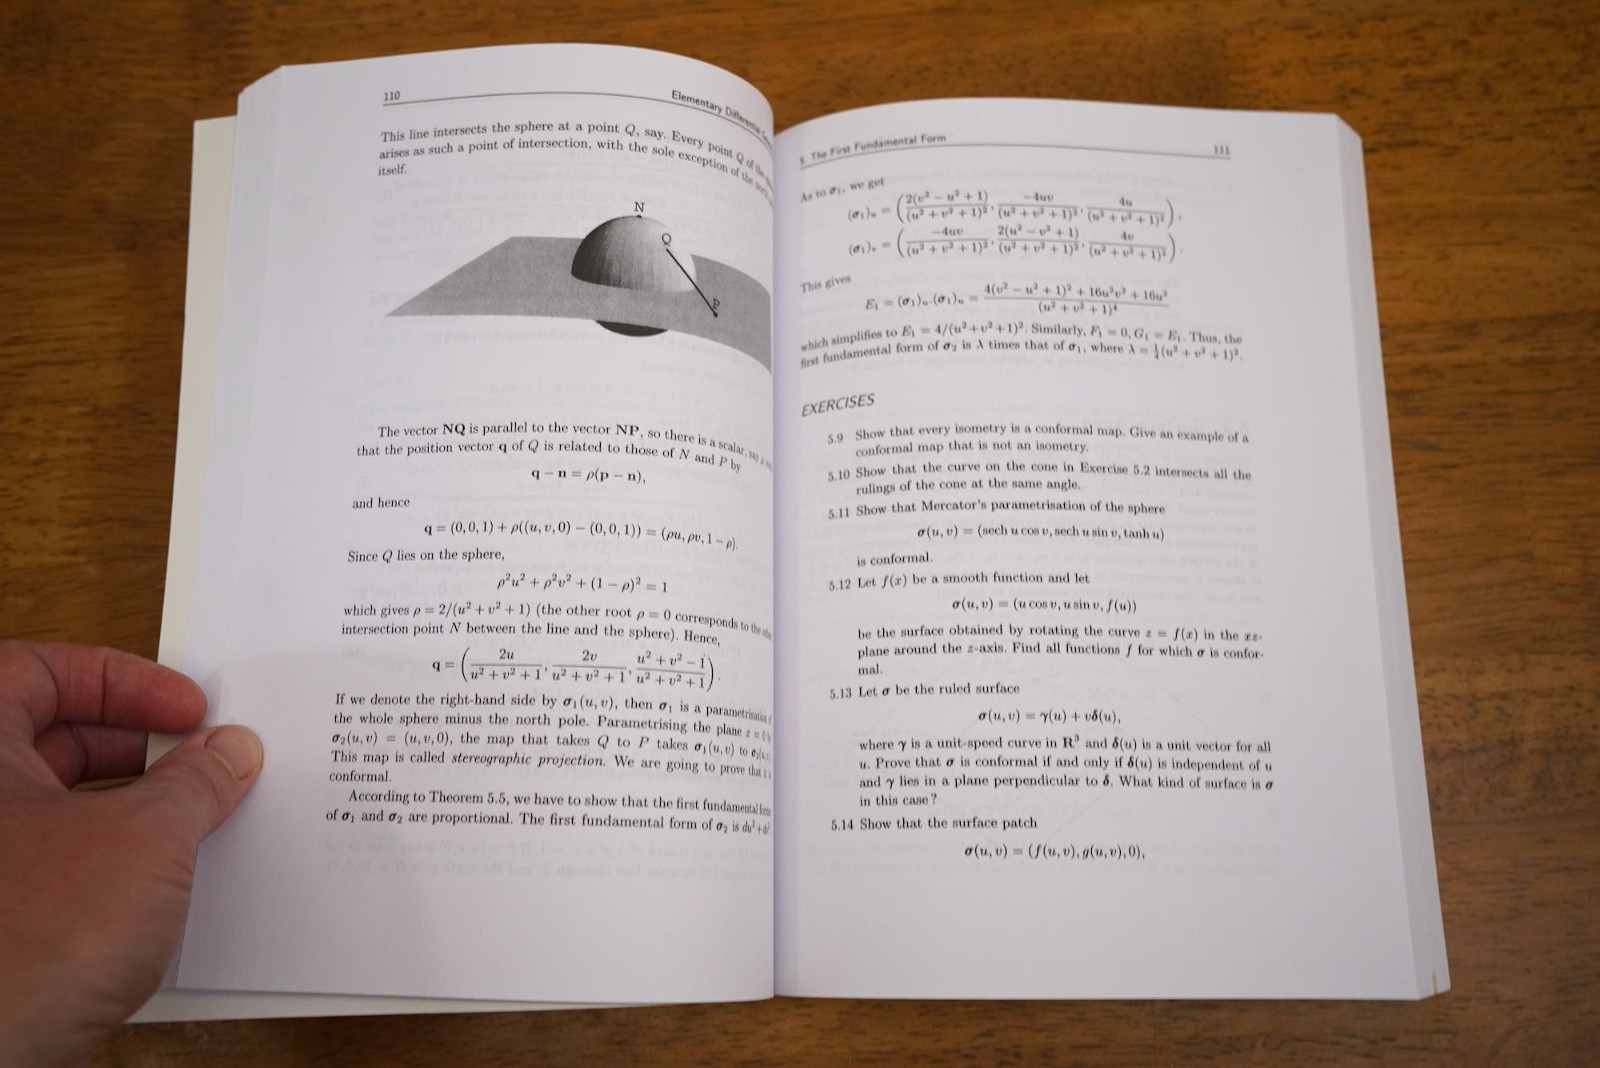 110
Elementary Differential
This line intersects the sphere at a point Q, say. Every point Q of the
arises as such a point of intersection, with the sole exception of the north
itself.
N
Q
P
The vector NQ is parallel to the vector NP, so there is a scalar, say
that the position vector q of Q is related to those of N and P by
q − n = ρ(p − n),
and hence
q = (0, 0, 1) + ρ((u, v, 0) − (0, 0, 1)) = (ρu, ρv, 1 − ρ).
Since Q lies on the sphere,
ρ²u² + ρ²v² + (1 − ρ)² = 1
which gives ρ = 2/(u² + v² + 1) (the other root ρ = 0 corresponds to the
intersection point N between the line and the sphere). Hence,
q = (2u/(u² + v² + 1), 2v/(u² + v² + 1), (u² + v² − 1)/(u² + v² + 1)).
If we denote the right-hand side by σ₁(u, v), then σ₁ is a parametrisation
the whole sphere minus the north pole. Parametrising the plane z = 0 by
σ₂(u, v) = (u, v, 0), the map that takes Q to P takes σ₁(u, v) to σ₂(u, v).
This map is called stereographic projection. We are going to prove that it is
conformal.
According to Theorem 5.5, we have to show that the first fundamental form
of σ₁ and σ₂ are proportional. The first fundamental form of σ₂ is du² + dv²
5. The First Fundamental Form
111
As to σ₁, we get
(σ₁)ᵤ = (2(v² − u² + 1)/(u² + v² + 1)², −4uv/(u² + v² + 1)², 4u/(u² + v² + 1)²),
(σ₁)ᵥ = (−4uv/(u² + v² + 1)², 2(u² − v² + 1)/(u² + v² + 1)², 4v/(u² + v² + 1)²).
This gives
E₁ = (σ₁)ᵤ.(σ₁)ᵤ = (4(v² − u² + 1)² + 16u²v² + 16u²)/(u² + v² + 1)⁴
which simplifies to E₁ = 4/(u² + v² + 1)². Similarly, F₁ = 0, G₁ = E₁. Thus, the
first fundamental form of σ₂ is λ times that of σ₁, where λ = ¼(u² + v² + 1)².
EXERCISES
5.9 Show that every isometry is a conformal map. Give an example of a
conformal map that is not an isometry.
5.10 Show that the curve on the cone in Exercise 5.2 intersects all the
rulings of the cone at the same angle.
5.11 Show that Mercator's parametrisation of the sphere
σ(u, v) = (sech u cos v, sech u sin v, tanh u)
is conformal.
5.12 Let f(x) be a smooth function and let
σ(u, v) = (u cos v, u sin v, f(u))
be the surface obtained by rotating the curve z = f(x) in the xz-
plane around the z-axis. Find all functions f for which σ is confor-
mal.
5.13 Let σ be the ruled surface
σ(u, v) = γ(u) + vδ(u),
where γ is a unit-speed curve in R³ and δ(u) is a unit vector for all
u. Prove that σ is conformal if and only if δ(u) is independent of u
and γ lies in a plane perpendicular to δ. What kind of surface is σ
in this case?
5.14 Show that the surface patch
σ(u, v) = (f(u, v), g(u, v), 0),